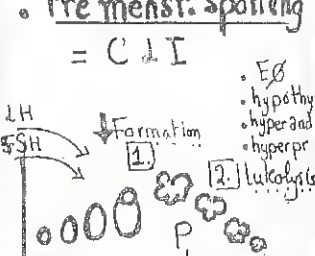 • Pre menst. spotting
= C L I
• EØ
• hypothy
• hyperand
• hyperpr
LH
FSH
↓Formation
1.
2. luteolysis
P